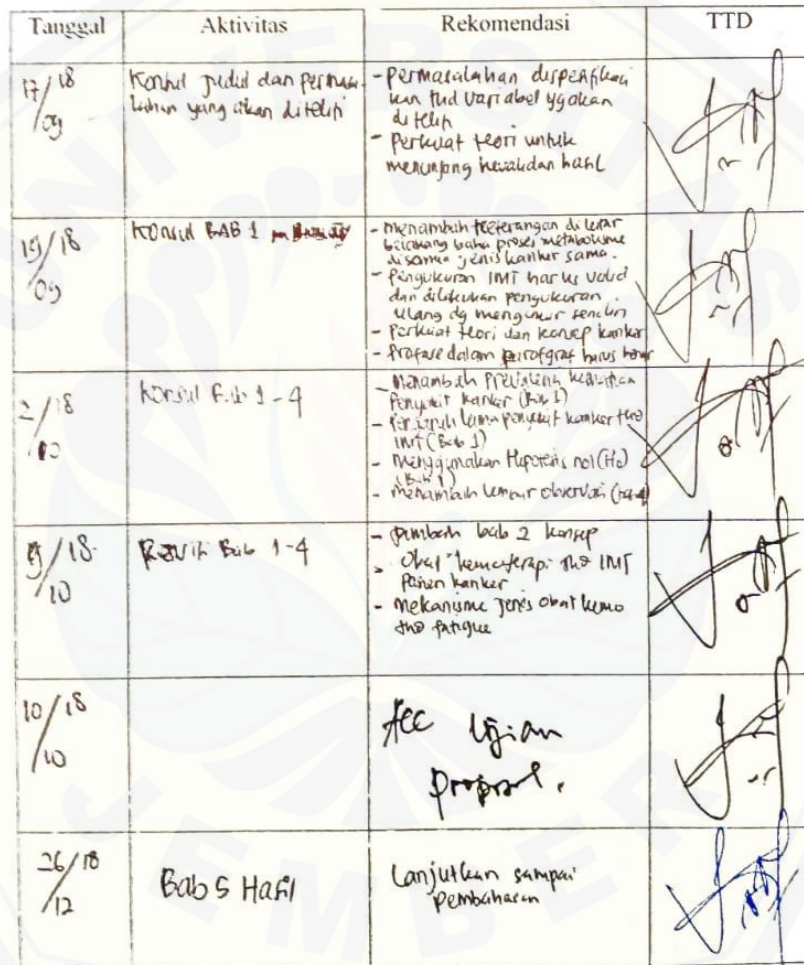 Tanggal Aktivitas Rekomendasi TTD
17/18
09
Konsul judul dan permasa-
lahan yang akan diteliti
- permasalahan dispesifikasi
kan thd variabel yg akan
diteliti
- perkuat teori untuk
menunjang hasil
19/18
09
Konsul BAB 1
- menambah keterangan di latar
belakang bahwa proses metabolisme
disemua jenis kanker sama.
- pengukuran IMT harus valid
dan dilakukan pengukuran
ulang dg mengukur sendiri
- perkuat teori dan konsep kanker
- dalam harus
2/18
10
Konsul Bab 1-4
- Menambah Prevalensi
Penyakit kanker (Bab 1)
- Pengaruh lama penyakit kanker thd
IMT (Bab 1)
- Menggunakan Hipotesis nol (Ho)
(Bab 1)
- menambah lembar observasi
9/18
10
Revisi Bab 1-4
- bab 2 konsep
- Obat kemoterapi thd IMT
Pasien kanker
- mekanisme jenis obat kemo
thd fatigue
10/18
10
Acc Ujian
proposal.
26/18
12
Bab 5 Hasil
Lanjutkan sampai
pembahasan
UNIVERSITAS
JEMBER